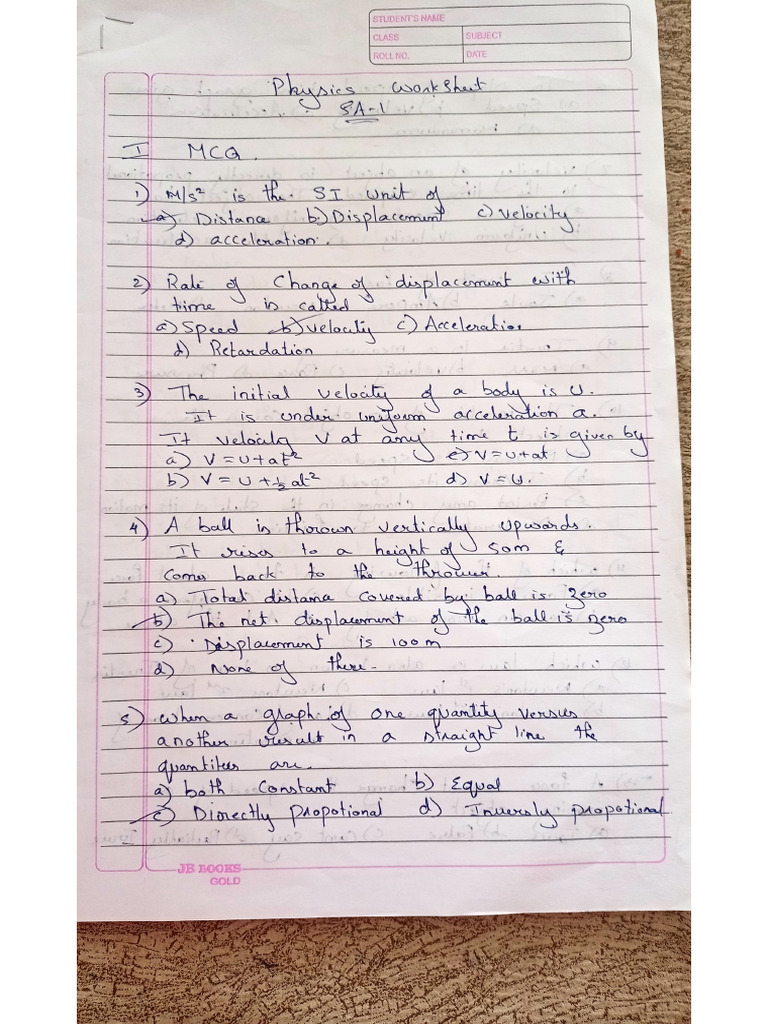 STUDENT'S NAME
CLASS SUBJECT
ROLL NO. DATE
Physics WorkSheet
SA-1
I MCQ.
1) M/s² is the SI Unit of
a) Distance b) Displacement c) velocity
d) acceleration.
2) Rate of Change of displacement with
time is called
a) Speed b) velocity c) Acceleration
d) Retardation
3) The initial velocity of a body is u.
It is under uniform acceleration a.
It velocity V at any time t is given by
a) V = u+at² c) V = u+at
b) V = u+½at² d) V = u.
4) A ball is thorown vertically upwards.
It rises to a height of 50m &
comes back to the thrower.
a) Total distance covered by ball is zero
b) The net displacement of the ball is zero
c) Displacement is 100m
d) None of there.
5) when a graph of one quantity versus
another result in a straight line the
quantities are.
a) both Constant b) Equal
c) Directly propotional d) Inversly propotional
JB BOOKS
GOLD